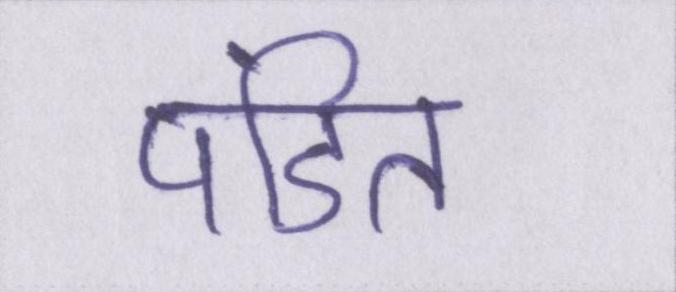 पंडित